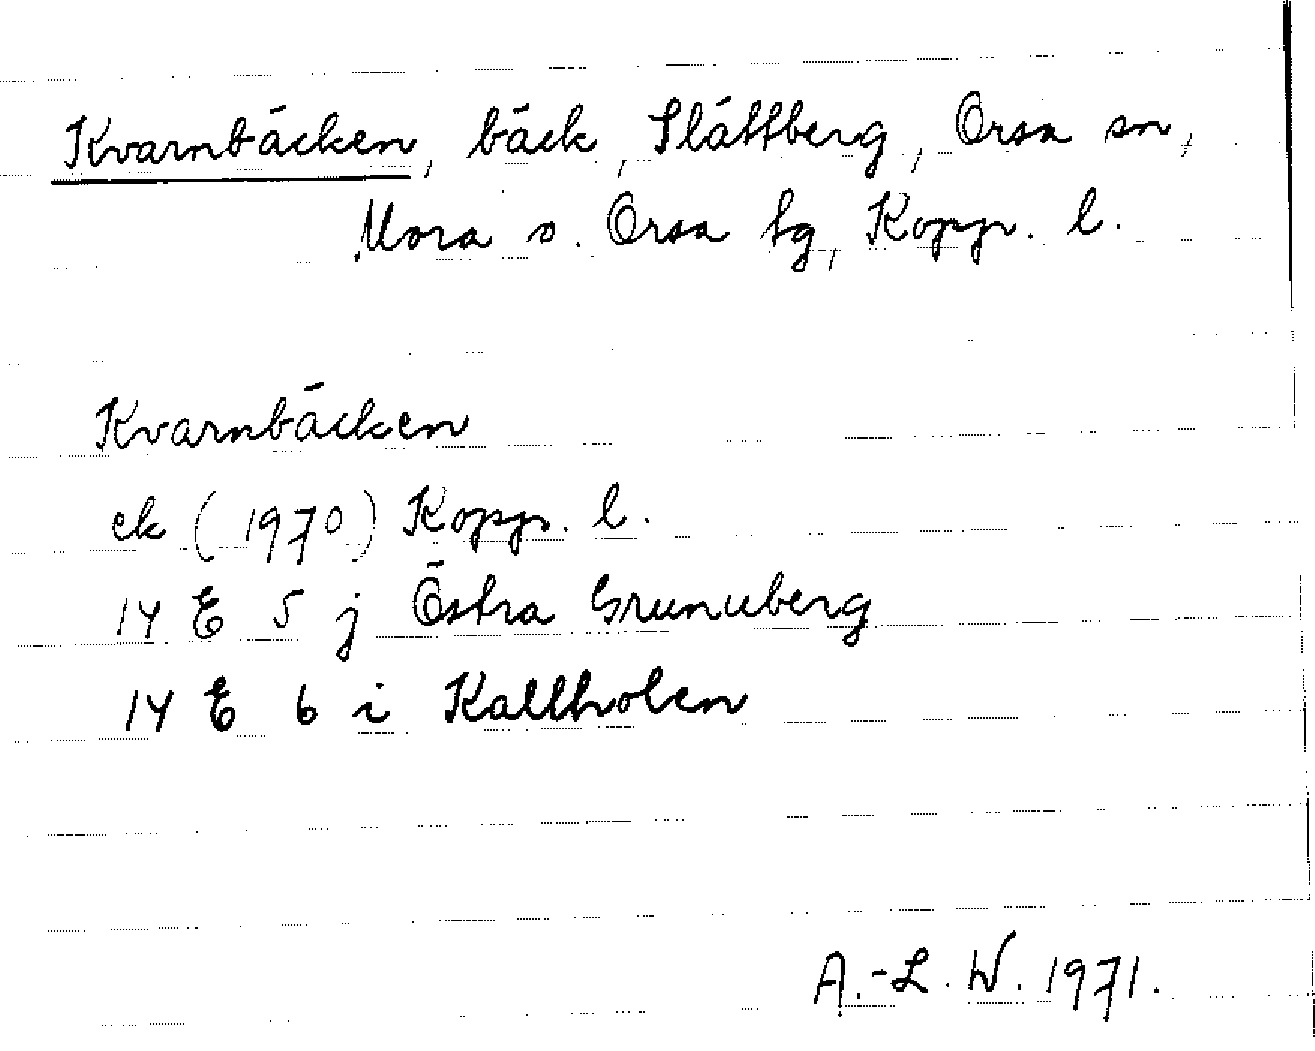 Kvarnbäcken, bäck, Slättberg, Orsa sn,
Mora o. Orsa tg, Kopp. l.
Kvarnbäcken
ek (1970) Kopp. l.
14 E 5 j Östra Grunuberg
14 E 6 i Kallholen
A.-L. W. 1971.